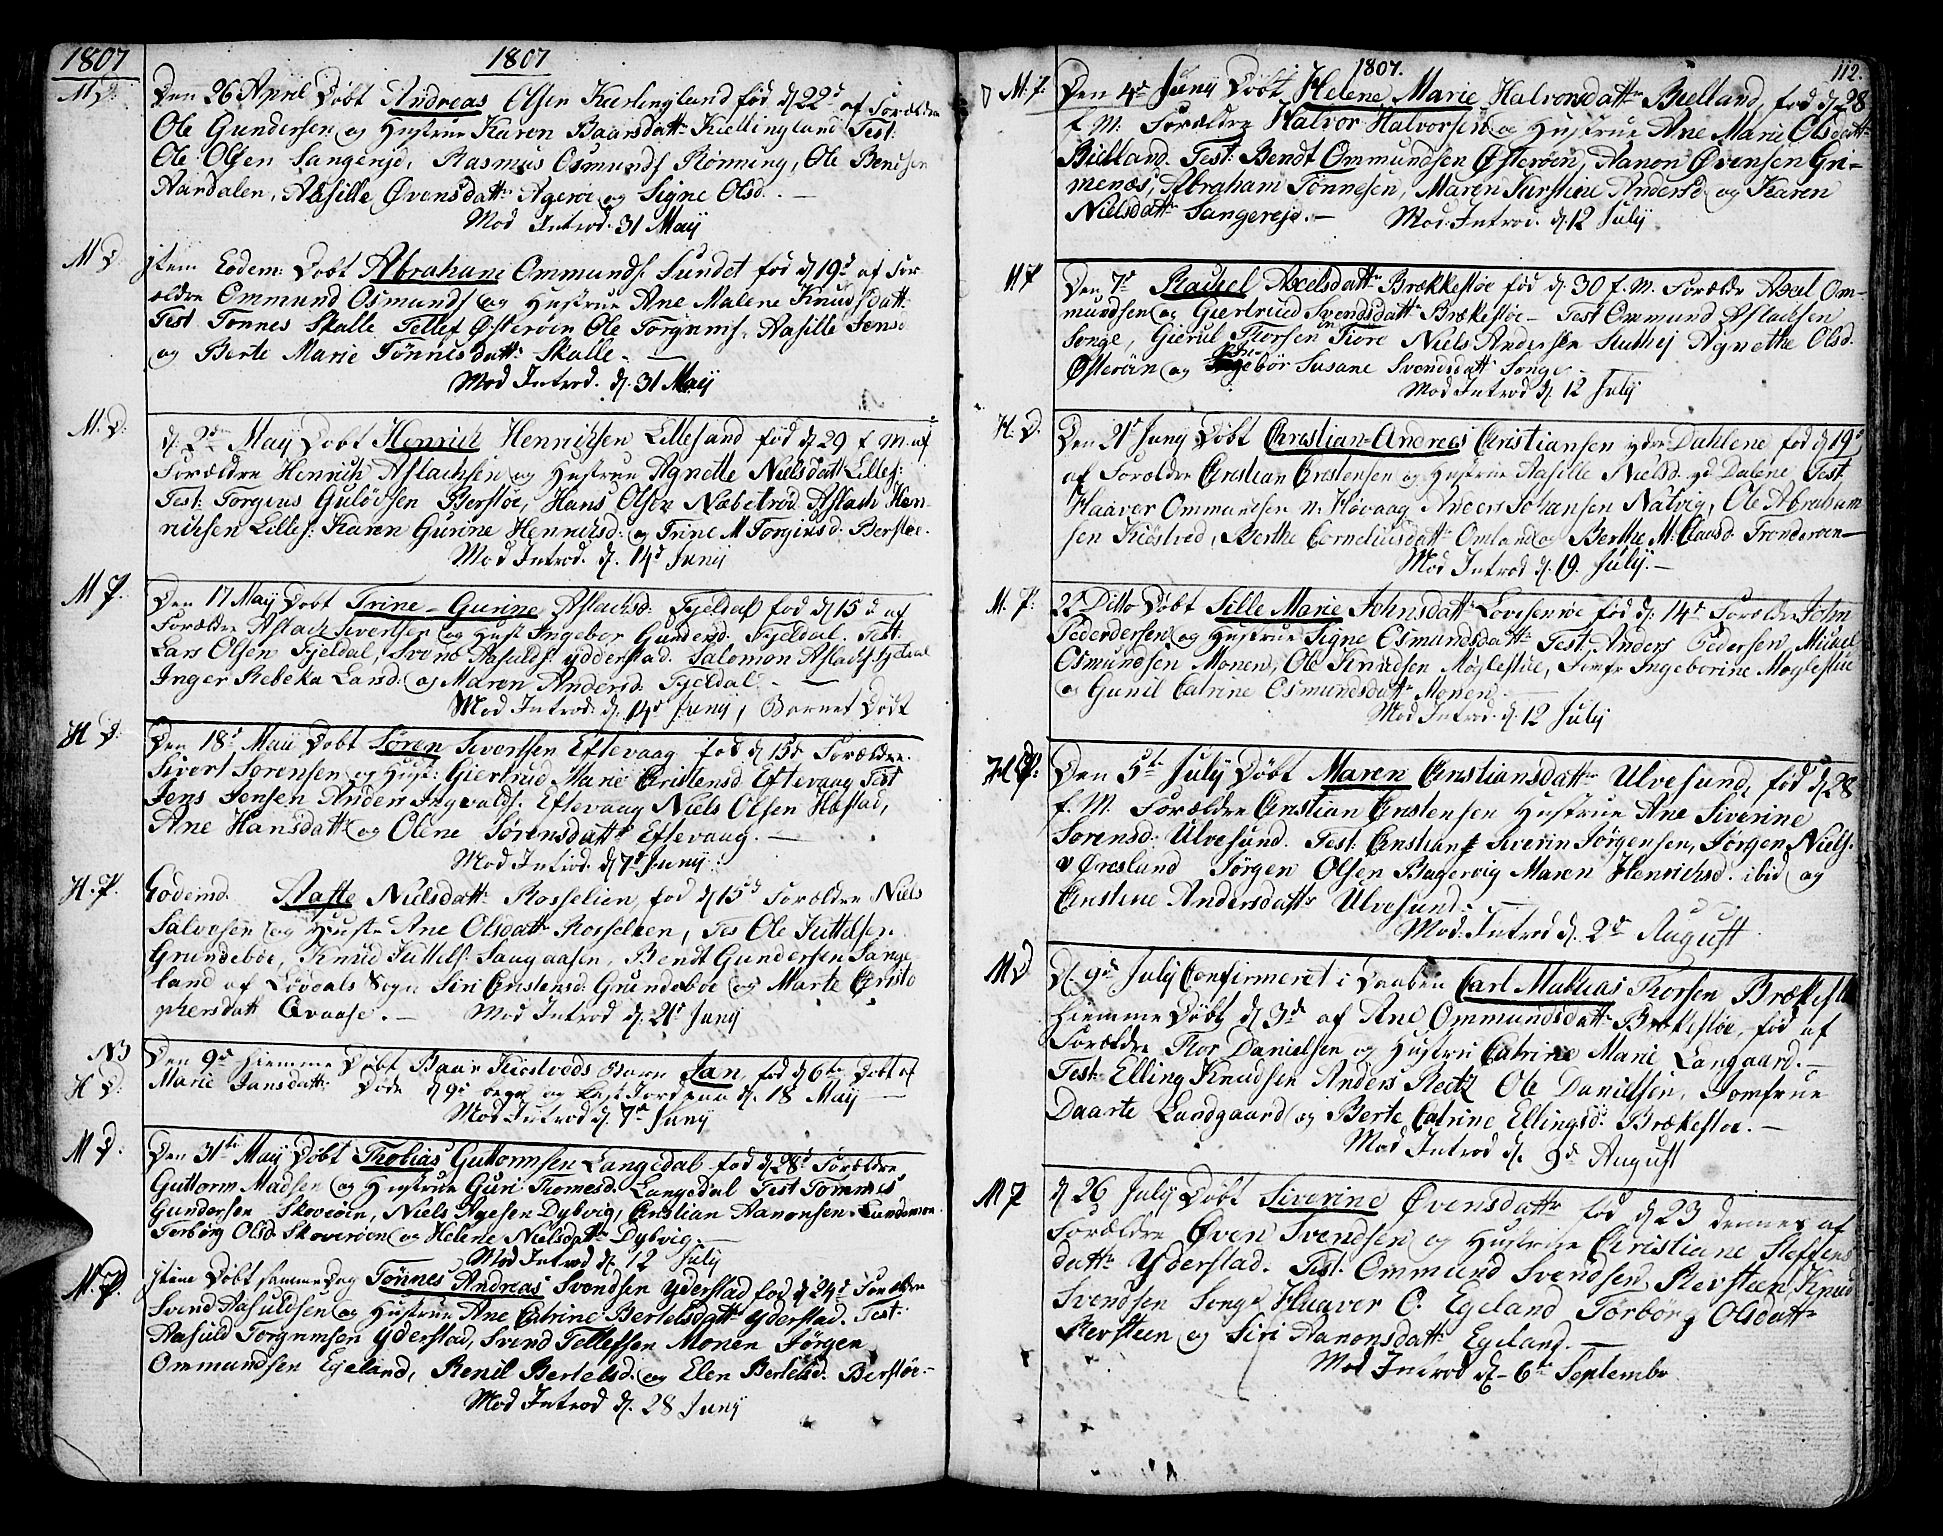 1807
1807
M D: Den 26 April Døbt Andreas Olsen Kierlingland fød d 22d af Forældre
Ole Gundersen og Hustrue Karen Baarsdattr Kiellingland Test:
Ole Olsen Sangereje, Rasmus Osmunds Rønning, Ole Bentsen
Aardalen, Aasille Øvensdattr Agerøe og Signe Olsd. —
Mod Introd. 31 May
M D: jtem Eodem: Døbt Abraham Ommunds. Sundet fød d 19d af For-
ældre Ommund Osmunds og Hustrue Ane Malene Knudsdattr
Test Tønnes Skalle Tellef Østerøen Ole Torgrims. Aasille Jensd
og Berte Marie Tønnisdattr Skalle. —
Mod Introd. d. 31 May
M. D: d: 3die May Døbt Henrich Henrichsen Lillesand fød d 29 f. M. af
Forældre Henrich Aslachsen og Hustrue Agnette Nielsdatt Lilles:
Test: Torgius Guløvsen Berstøe, Hans Olsen Næbetrød Aslach Hen-
richsen Lilles: Karen Gurine Henrichsd: og Trine M Torgiusd: Berstøe.
Mod Introd. d. 14d Junij
M P. Den 17 May Døbt Trine-Gurine Aslachsd: Fjeldal fød d 15d af
Forældre Aslach Sivertsen og Hust Ingebor Gundersd. Fjeldal. Test:
Lars Olsen Fjeldal, Svend Aasulds. ydderstad. Salomon Aslachs Fjeldal
Inger Rebeka Larsd: og Maren Andersd: Fjeldal. —
Mod Introd: d. 14d Junij, Barnet Dødt
H D: Den 18d May Døbt Søren Sivertsen Eftevaag fød d 15d Forældre
Sivert Sørensen og Hust: Giertrud Marie Cristensd Eftevaag Test
Jens Jensen Anders Ingvalds. Eftevaag Niels Olsen Hæstad,
Ane Hansdatt og Olene Sørensdattr Eftevaag. —
Mod Introd d 7d Junij:
H. P. Eodemd. Aaste Nielsdattr Rosselien, fød d 15d Forældre Niels
Salvesen og Hustr Ane Olsdattr Rosselien, Tes Ole Juttelsen
Grundebøe, Knud Juttels: Saagaasen, Bendt Gundersen Sange
land af Løvdals Sogn Siri Cristensd: Grundebøe og Marte Cristo
phersdatt Qvaase. — Mod Introd d. 21d Junij
N3
H D: Den 9d Hiemme Døbt Baar Kiøstveds Barn Jan, fød d 6te Døbt af
Marie Jansdattr Døde d 9d begr og kast Jord paa d. 18 May —
Mod Introd d. 7de Junij
M D. Den 31te May Døbt Thobias Guttormsen Langedal fød d 28d Forældre
Guttorm Madsen og Hustrue Guri Thomesd. Langedal Test Tommes
Gundersen Skoverøen, Niels Agesen Dybvig, Cristian Aanonsen
Torbørg Olsd Skoverøen og Helene Nielsdattr Dybvig. —
Mod Introd d. 12 July
M. P. jtem Døbt samme Dag Tønnes Andreas Svendsen Yderstad fød d 24d Forældre
Svend Aasuldsen og Hustrue Ane Catrine Bertelsdattr Yderstad. Test:
Aasuld Torgrimsen Yderstad, Svend Tellefsen Monen Jørgen
Ommundsen Egeland, Renil Bertelsd. og Elen Bertelsd. Berstøe-
Mod Introd d. 28 Junij
1807. 112.
M. P. Den 4de Junij Døbt Helene Marie Halvorsdattr Bielland, fød d 28
f. M: Forældre Halvor Halvorsen og Hustrue Ane Marie Olsdattr
Bielland. Test: Bendt Ommundsen Østerøen, Aanon Øvensen Gri-
menæs, Abraham Tønnesen, Maren Kirstine Andersd og Karen
Nielsdattr Sangereje. — Mod: Introd. d. 12 July
M P Den 7d Rachel Axelsdattr Brækkestøe fød d. 30 f. M. Forældr Axel Om-
mundsen og Giertrud Svendsdattr Brækestøe — Test Ommund Aslachsen
Songe, Gierul Thorsen Fiore Niels Andersen Agnethe Olsd.
Østerøen og Susane Svendsdatt Songe
Mod Introd d. 12 July
H. D. Den 21d Junij Døbt Christian-Andreas Christiansen ydre Dahlene fød d 19d
af Forældre Cristian Cristensen og Hustrue Aasille Nielsd. yd Dalene Test
Haaver Ommundsen n. Høvaag Anders Johansen Natvig, Ole Abraham
sen Kiøstved, Berthe Corneliusdatt Omland og Berthe M: Clausd. Tronderøen—
Mod Introd d. 19. July. —
M. P: 22 Ditto Døbt Sille Marie Johnsdattr Lovisenroe fød d: 14d Forældre John
Pedersen og Hustrue Signe Osmundsdattr Test Anders Pedersen Mikel
Osmundsen Monen, Ole Knudsen Møglestue, Jomfr Ingeborine Moglestue
og Gunil Catrine Osmundsdattr Monen. —
Mod Introd d. 12 July
H P: Den 5te July Døbt Maren Cristiansdattr Ulvesund, fød d 28
f. M. Forældre Cristian Cristensen Hustrue Ane Siverine
Sørensd: Ulvesund. Test: Cristian & Siverin Jørgensen, Jørgen Niels.
v Øresland Jørgen Olsen Bagervig Maren Henrichsd: ibid og
Cristine Andersdattr Ulvesund. —
Mod: Introd d. 2d August
M D D 9d July Confirmeret i Daaben Carl Mathias Thorsen Brækestø
Hiemme Døbt d 3d af Ane Ommundsdattr Brækestøe, fød af
Forældre Thor Danielsen og Hustru Catrine Marie Langaard. —
Test: Elling Knudsen Anders Reetz Ole Danielsen, Jomfrue
Daarte Landgaard og Berte Catrine Ellingsd: Brækestøe. —
Mod Introd d. 9d August
M P d 26 July Døbt Siverine Øvensdattr fød d 23 dennes af
Forældre Øven Svendsen og Hustrue Christiane Steffens
dattr Yderstad. Test: Ommund Svendsen Revsteen, Knud
Svendsen Songe Haaver O. Egeland Torborg Olsdattr
Revsteen og Siri Aanonsdattr Egeland. —
Mod Introd d. 6te Septembr